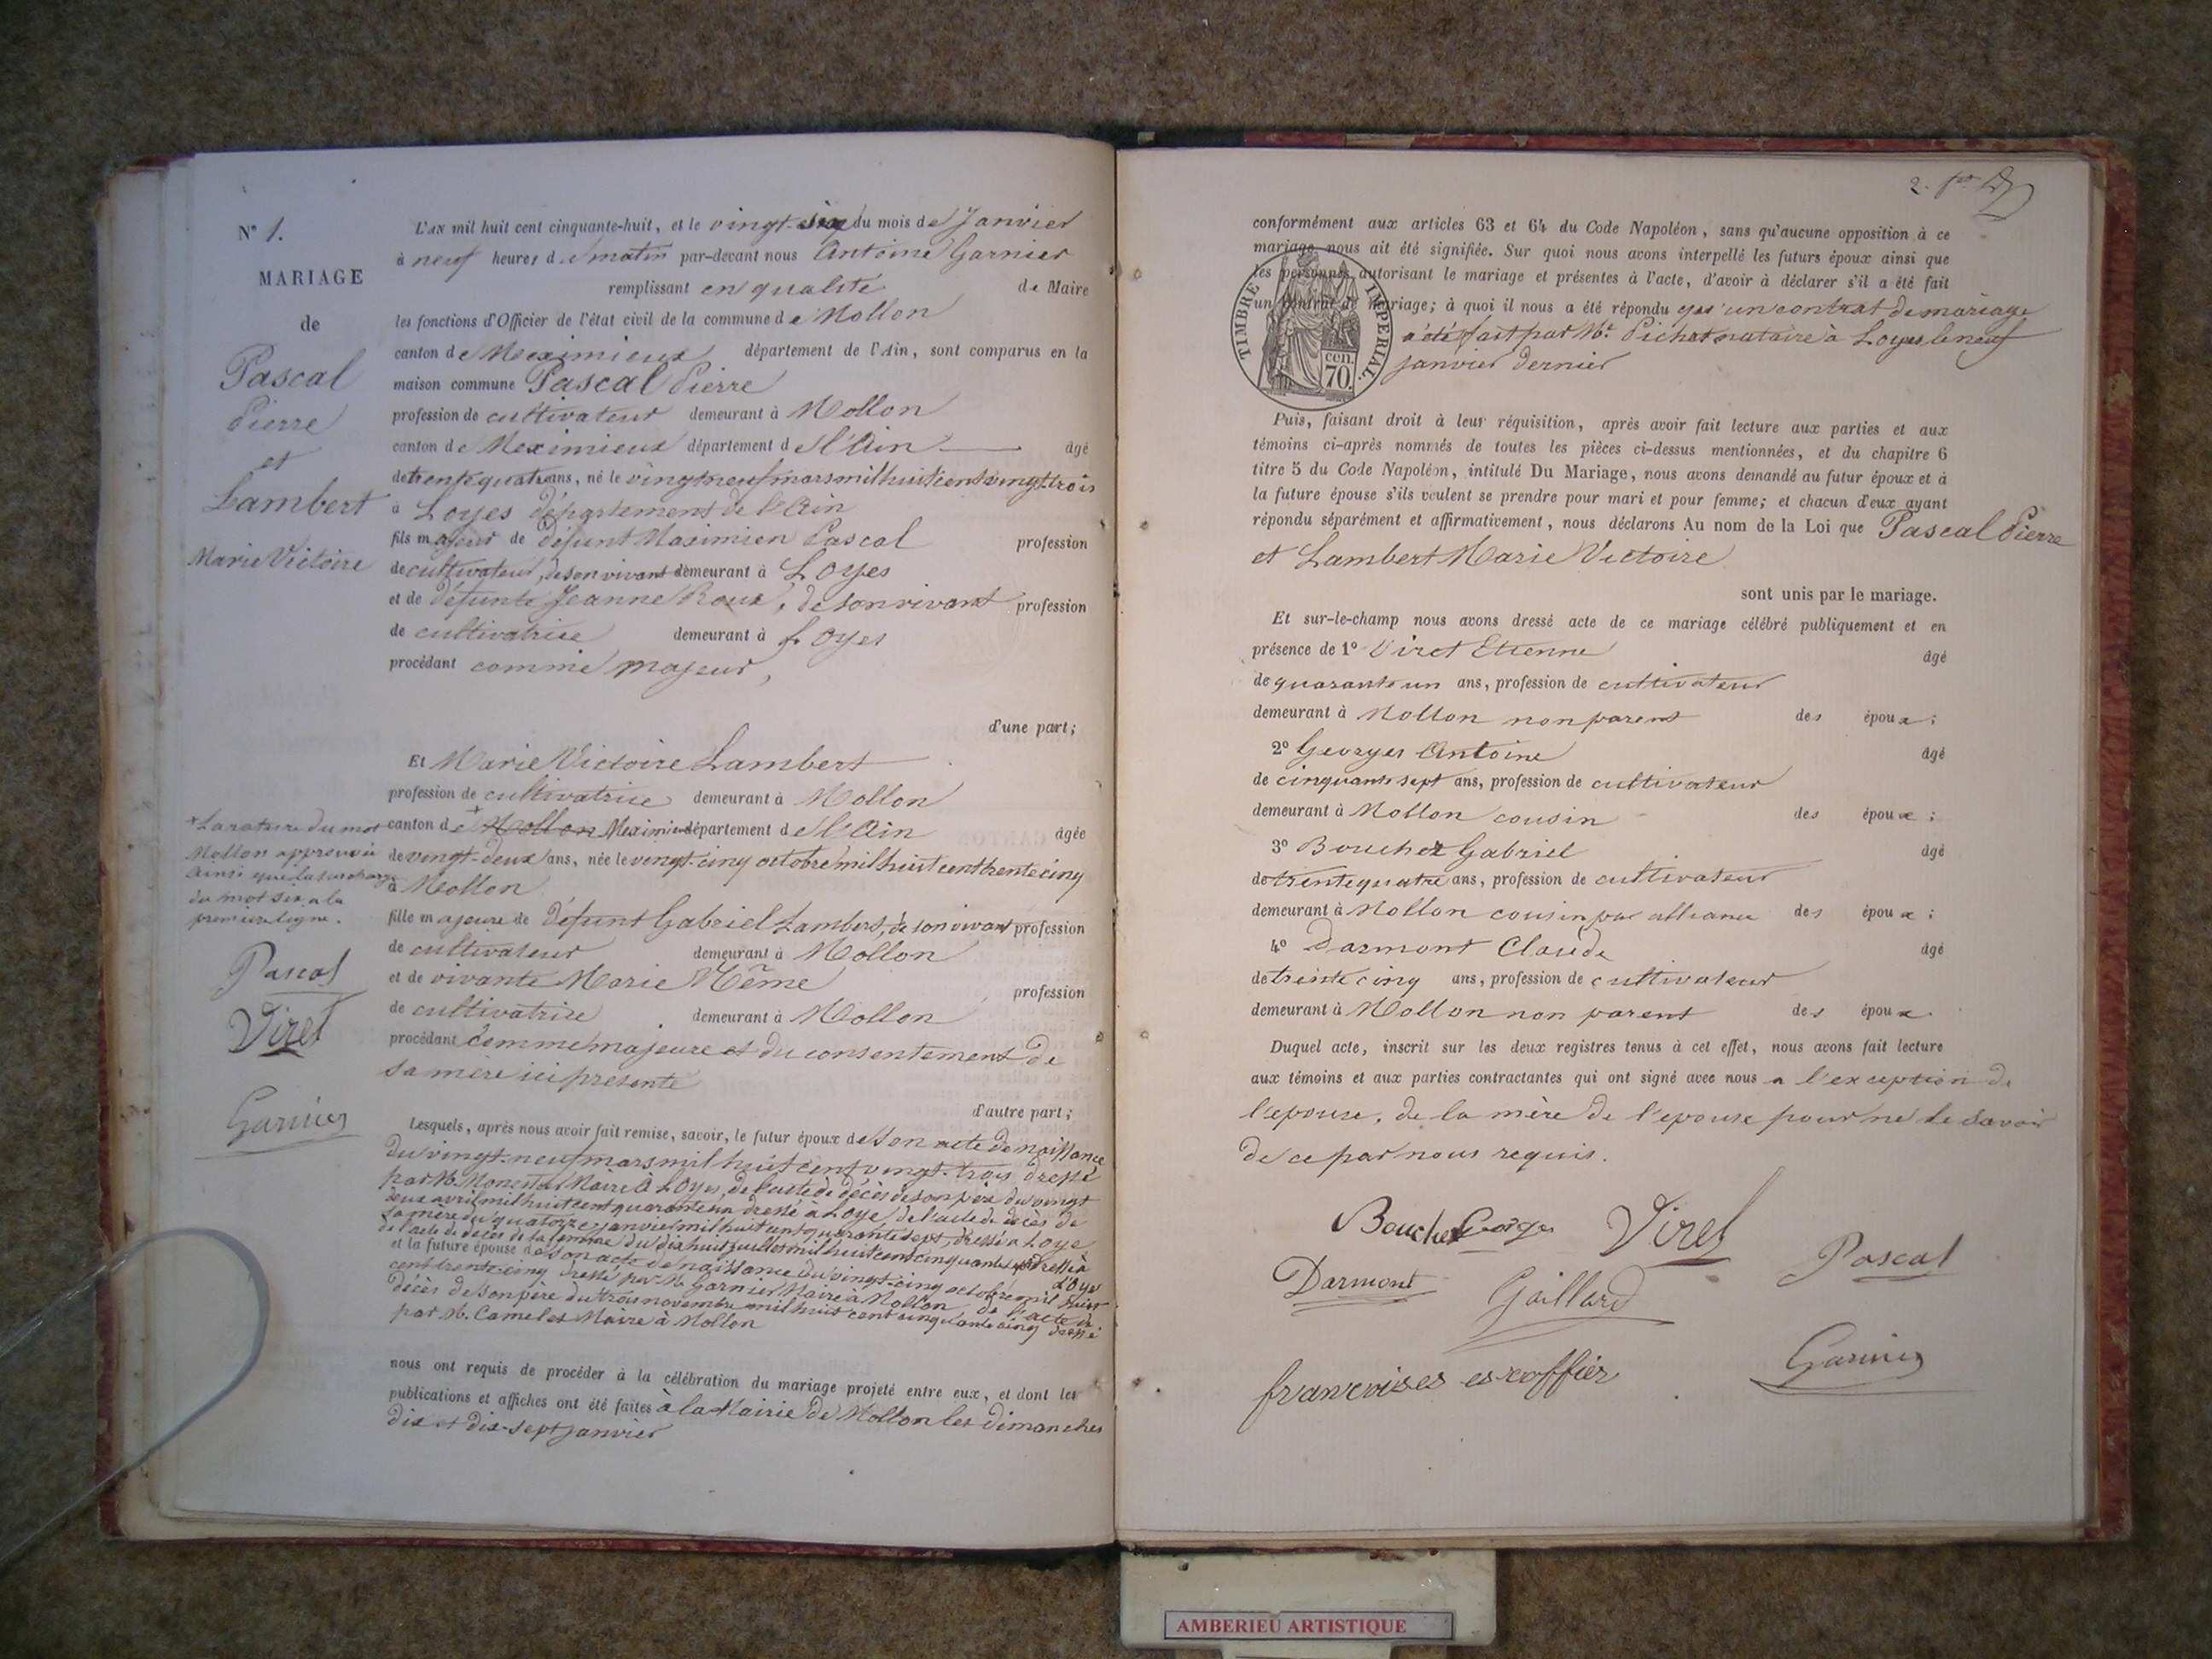 N° 1.
MARIAGE
de
Pascal
Pierre
et
Lambert
Marie Victoire
L'AN mil huit cent cinquante-huit, et le vingt-six du mois de Janvier
à neuf heures d u matin par-devant nous Antoine Garnier
remplissant en qualité de Maire
les fonctions d'Officier de l'état civil de la commune de Mollon
canton de Meximieux département de l'Ain, sont comparus en la
maison commune Pascal Pierre
profession de cultivateur demeurant à Mollon
canton de Meximieux département de l'Ain âgé
de trente quatre ans, né le vingt neuf mars mil huit cent vingt-trois
à Loyes département de l'Ain
fils majeur de défunt Maximien Pascal profession
de cultivateur, de son vivant demeurant à Loyes
et de défunte Jeanne Roux, de son vivant profession
de cultivatrice demeurant à Loyes
procédant comme majeur,
d'une part;
Et Marie Victoire Lambert
profession de cultivatrice demeurant à Mollon
canton de Mollon Meximieux département de l'Ain âgée
de vingt-deux ans, née le vingt-cinq octobre mil huit cent trente cinq
à Mollon
fille majeure de défunt Gabriel Lambert, de son vivant profession
de cultivateur demeurant à Mollon
et de vivante Marie Même profession
de cultivatrice demeurant à Mollon
procédant comme majeure et du consentement de
sa mère ici présente
d'autre part;
* La rature du mot
Mollon approuvée
ainsi que la surcharge
du mot six a la
première ligne.
Pascal
Viret
Garnier
Lesquels, après nous avoir fait remise, savoir, le futur époux de son acte de naissance
du vingt-neuf mars mil huit cent vingt-trois dressé
par M. Maire à Loyes, de l'acte de décès de son père du vingt
deux avril mil huit cent quarante un dressé à Loye de l'acte de décès de
sa mère du quatorze janvier mil huit cent quarante sept, dressé à Loye
de l'acte de décès de sa femme du dix huit juillet mil huit cent cinquante sept dressé à
Loye
et la future épouse de son acte de naissance du vingt-cinq octobre mil huit
cent trente cinq dressé par M. Garnier Maire à Mollon de l'acte de
décès de son père du trois novembre mil huit cent cinquante cinq dressé
par M. Camelet Maire à Mollon
nous ont requis de procéder à la célébration du mariage projeté entre eux, et dont les
publications et affiches ont été faites à la Mairie de Mollon les dimanches
dix et dix-sept janvier
2.
conformément aux articles 63 et 64 du Code Napoléon, sans qu'aucune opposition à ce
mariage nous ait été signifiée. Sur quoi nous avons interpellé les futurs époux ainsi que
les personnes autorisant le mariage et présentes à l'acte, d'avoir à déclarer s'il a été fait
un contrat de mariage; à quoi il nous a été répondu qu'un contrat de mariage
a été fait par Me. Pichat notaire à Loyes le neuf
janvier dernier
TIMBRE IMPERIAL
cen.
70.
Puis, faisant droit à leur réquisition, après avoir fait lecture aux parties et aux
témoins ci-après nommés de toutes les pièces ci-dessus mentionnées, et du chapitre 6
titre 5 du Code Napoléon, intitulé Du Mariage, nous avons demandé au futur époux et à
la future épouse s'ils veulent se prendre pour mari et pour femme; et chacun d'eux ayant
répondu séparément et affirmativement, nous déclarons Au nom de la Loi que Pascal Pierre
et Lambert Marie Victoire
sont unis par le mariage.
Et sur-le-champ nous avons dressé acte de ce mariage célébré publiquement et en
présence de 1° Viret Etienne âgé
de quarante un ans, profession de cultivateur
demeurant à Mollon non parent des époux;
2° Georges Antoine âgé
de cinquante sept ans, profession de cultivateur
demeurant à Mollon cousin des époux;
3° Bouchet Gabriel âgé
de trente quatre ans, profession de cultivateur
demeurant à Mollon cousin par alliance des époux;
4° Darmont Claude âgé
de trente cinq ans, profession de cultivateur
demeurant à Mollon non parent des époux.
Duquel acte, inscrit sur les deux registres tenus à cet effet, nous avons fait lecture
aux témoins et aux parties contractantes qui ont signé avec nous a l'exception de
l'epouse, de la mère de l'epouse pour ne le savoir
de ce par nous requis.
Bouchet Georges Viret Pascal
Darmont Gaillard
francoises escoffier Garnier
AMBERIEU ARTISTIQUE